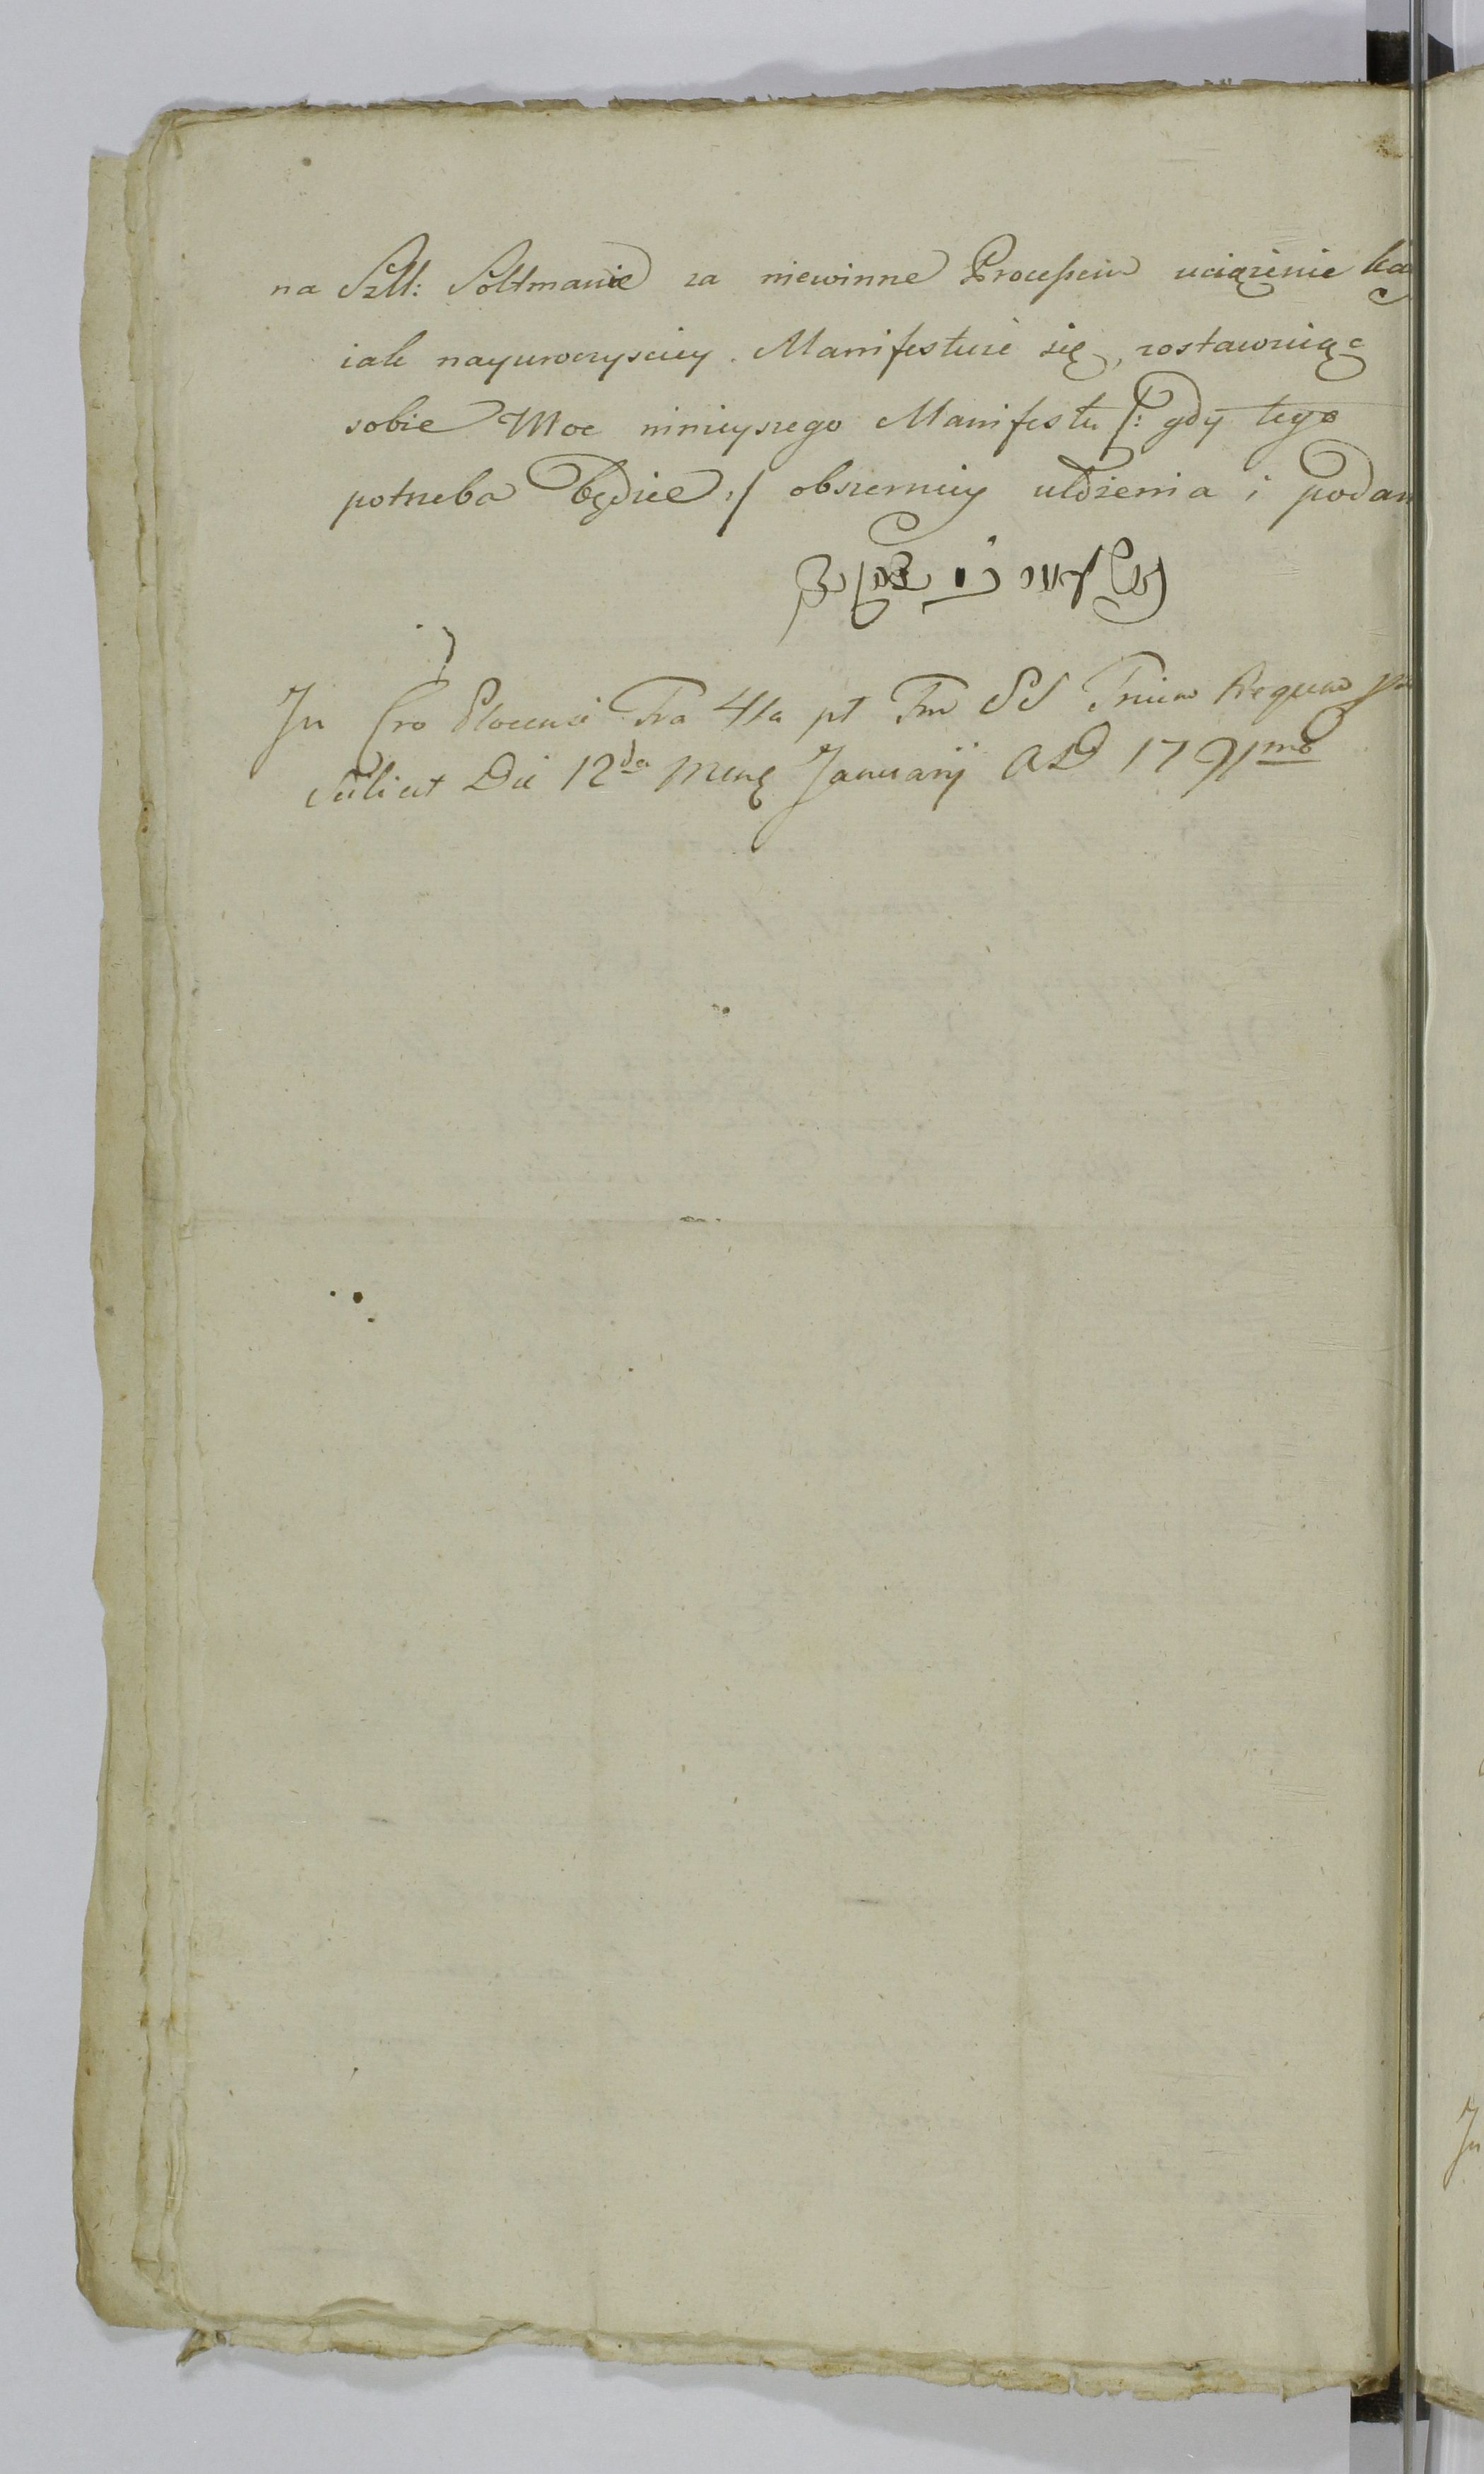 na Szll: Soltmanie za niewinne Processem uciążenie
iak nayuroczysciey. Manifestuie się, zostawuiąc
sobie Moc ninieyszego Manifestu /: gdy tego
potrzeba będzie :/ obszerniey ułożenia i podan
In Cro Plocensi Fra 4ta pt Fm SS Trium Regum
scilicet Die 12da Mens Januarij AD 1791mo